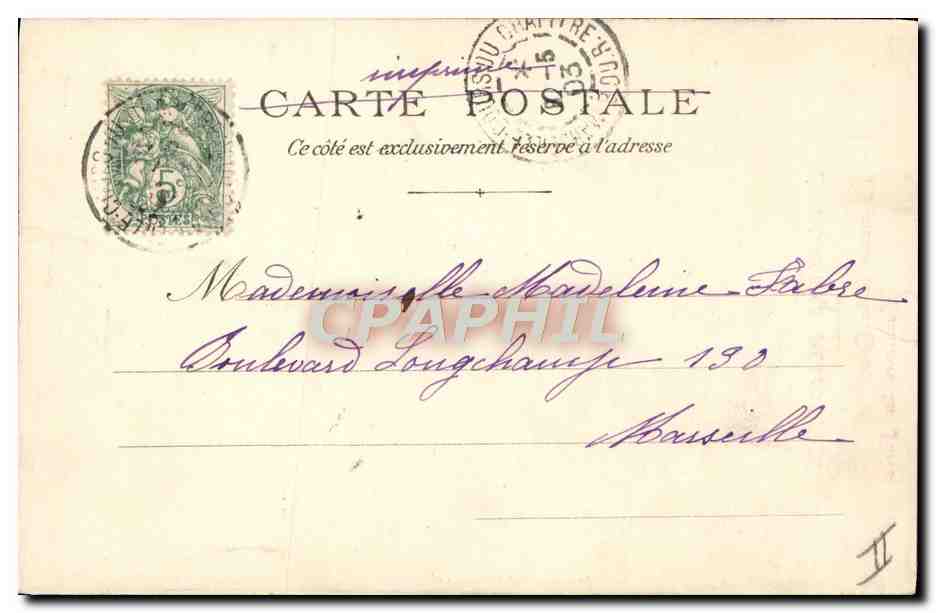 imprimé
CARTE POSTALE
Ce côté est exclusivement réservé à l'adresse
5c
POSTES
5
03
Mademoiselle Madeleine Fabre
CPAPHIL
Boulevard Longchamp 190
Marseille
II